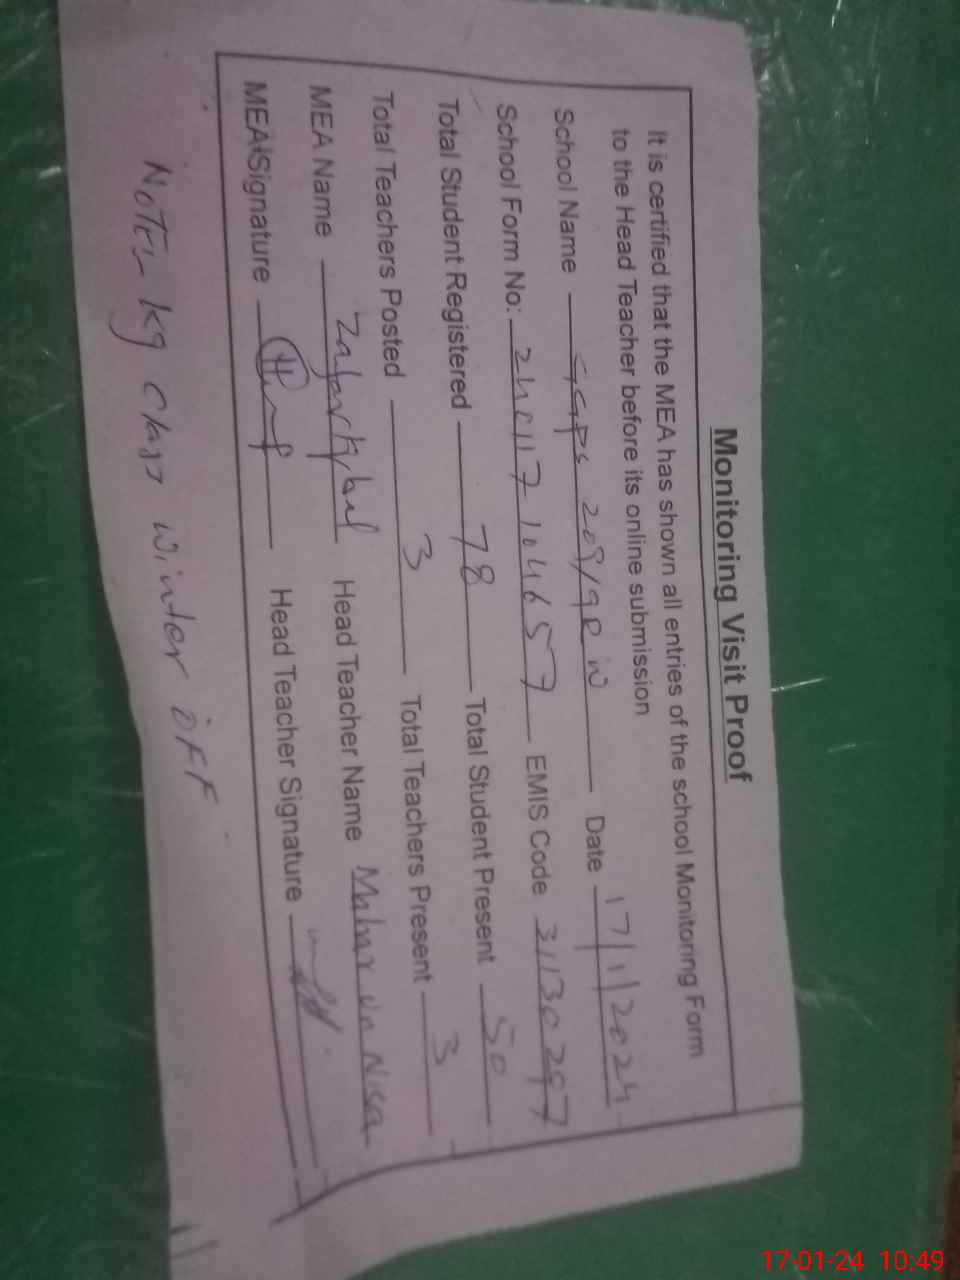 Monitoring Visit Proof
It is certified that the MEA has shown all entries of the school Monitoring Form
to the Head Teacher before its online submission
School Name GGPS 209/9R W Date 17/1/2024
School Form No: 240117104657 EMIS Code 31130297
Total Student Registered 78 Total Student Present 50
Total Teachers Posted 3 Total Teachers Present 3
MEA Name Zafar Iqbal Head Teacher Name un Nisa
MEA Signature Head Teacher Signature
Note:- kg class winter off
17-01-24 10:49